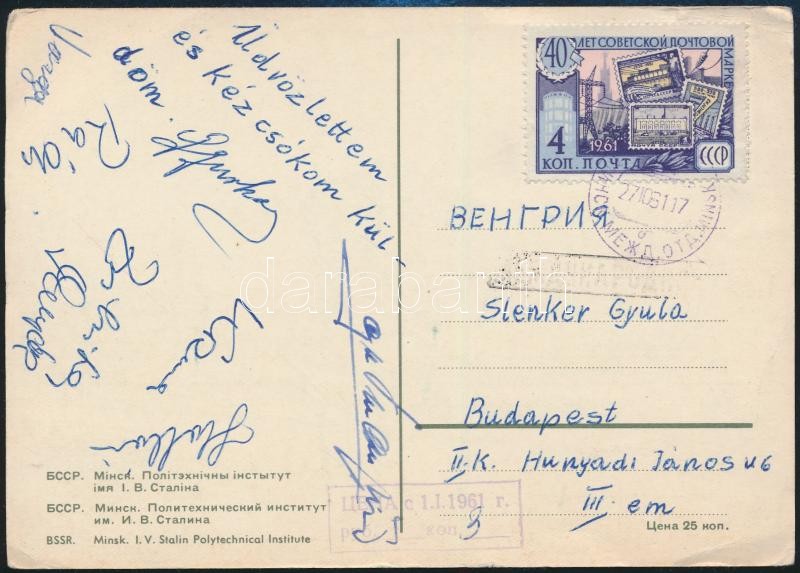 Üdvözlettem
és kéz csókom kül-
döm.
Varga
Rácz
40 ЛЕТ СОВЕТСКОЙ ПОЧТОВОЙ
МАРКЕ
1961
4
КОП. ПОЧТА
СССР
27 10 61 17
МИНСК МЕЖД. ОТД. MINSK
ВЕНГРИЯ
Slenker Gyula
Budapest
II.K. Hunyadi János u 6
III. em
Цена 25 коп.
ЦЕНА с 1.I.1961 г.
руб. коп. 3
БССР. Мінск. Політэхнічны інстытут
імя І. В. Сталіна
БССР. Минск. Политехнический институт
им. И. В. Сталина
BSSR. Minsk. I. V. Stalin Polytechnical Institute
darabanth